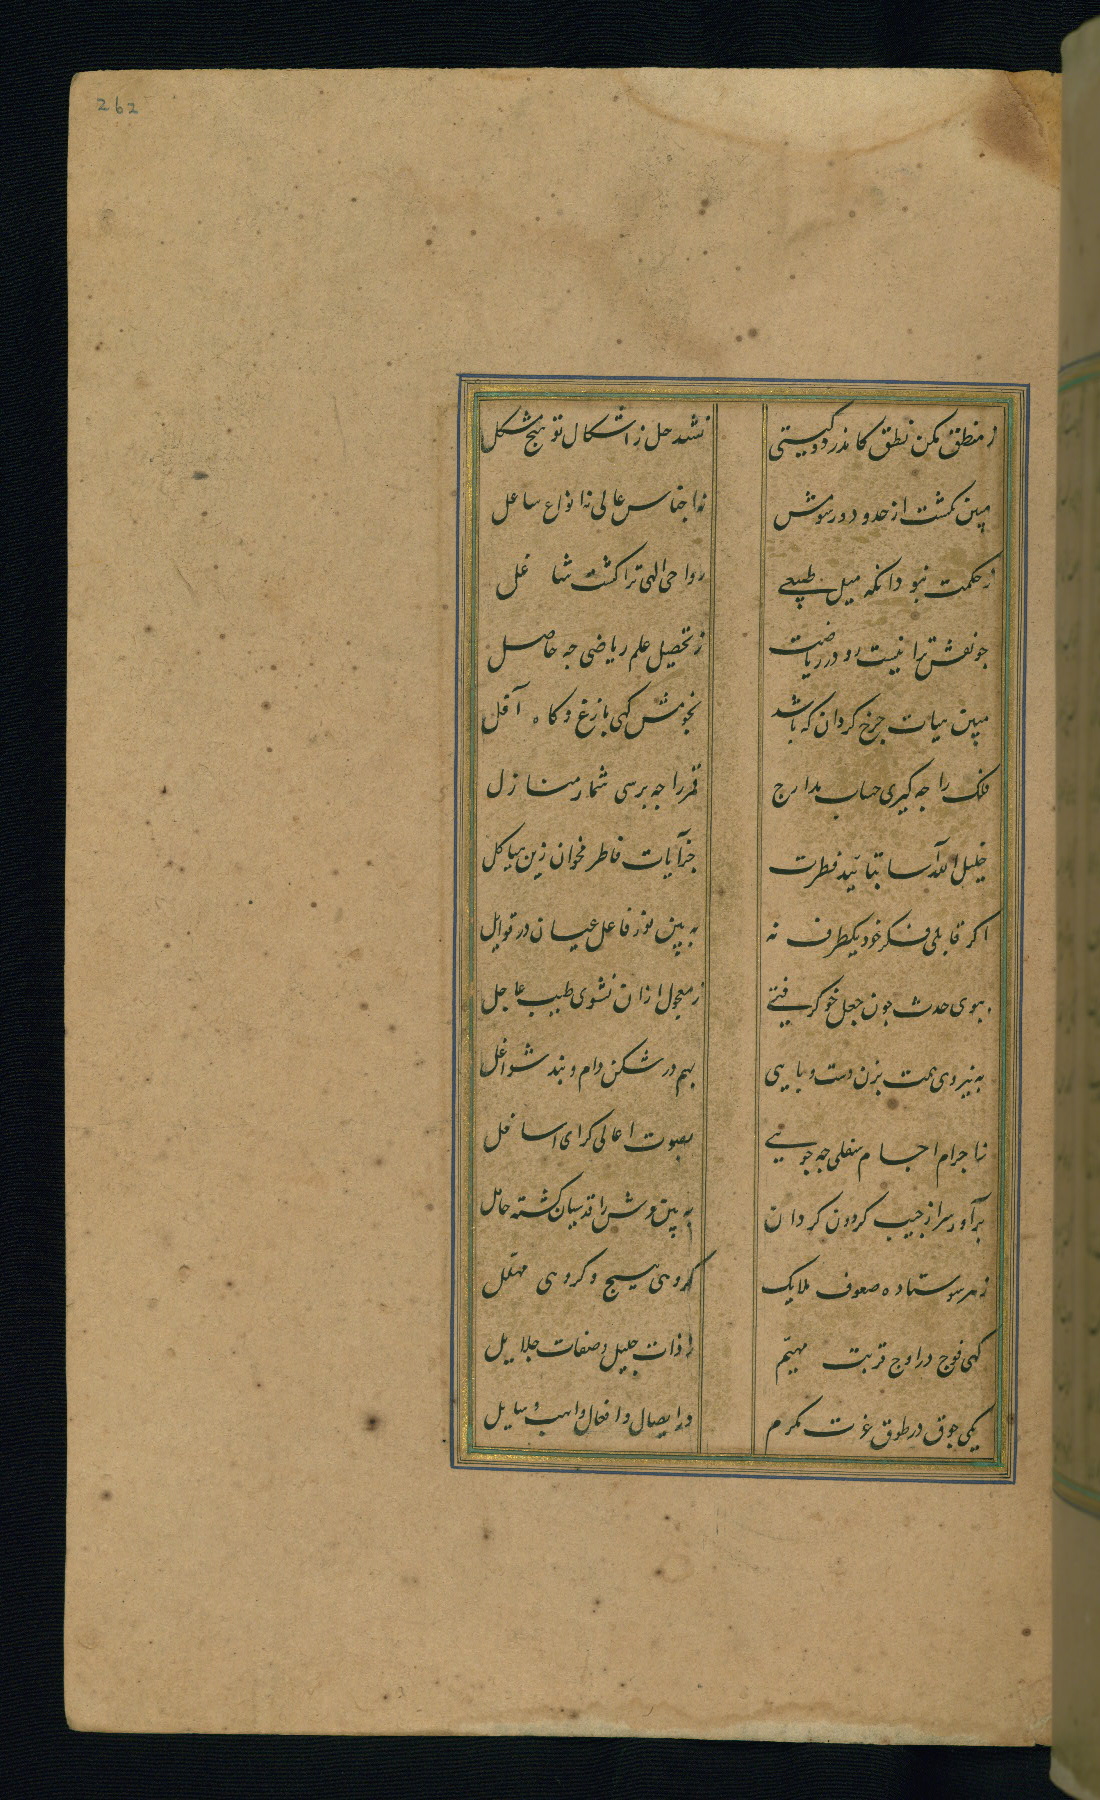 262
ز منطق مکن نطق کاندر دو کیتی نشد حل ز اشکال تو هیچ مشکل
مبین کشت از حدود و رسومش نه اجناس عالی نه انواع سافل
ز حکمت نبود انکه میل طبیعی روا حی الهی ترا کشت شاغل
جو نفس ترا نیست رو در ریاضت ز تحصیل علم ریاضی جه حاصل
مبین هیات جرخ کردان که باشد نجومش کهی بازغ و کاه آفل
فلک را جه کیری حساب مدارج قمر را جه برسی شمار منازل
خلیل الله آسا بتائید فطرت جز آیات فاطر مخوان زین هیاکل
اکر قابلی فکر خود یکطرف نه به بین نور فاعل عیان در قوابل
ببوی حدث جون جعل خو کرفتی ز معجول ازان نشوی طیب عاجل
به نیروی همت بزن دست و بایی بهم در شکن دام و بند شواغل
ز اجرام اجسام سفلی جه جویی بصوت اعالی کرای اسافل
برآور سر از جیب کردون کردان به بین عرش را قدسیان کشته حامل
ز هر سو ستاده صفوف ملایک کروهی مسبح و کروهی مهلل
کهی فوج در اوج قربت مهیم از ذات جلیل و صفات جلایل
یکی جوق در طوق عزت مکرم در ایصال و افعال واهب وسایل